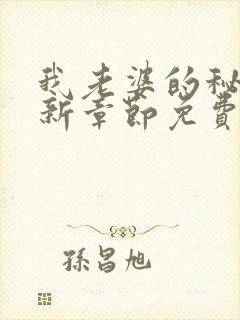 我老婆的秘
新章節免費
孫昌旭